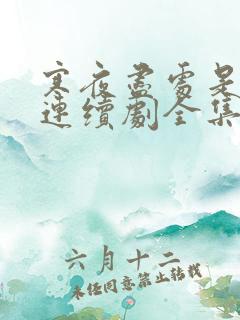 寒夜盡霽是
連續劇全集
六月十二
未经同意禁止转载